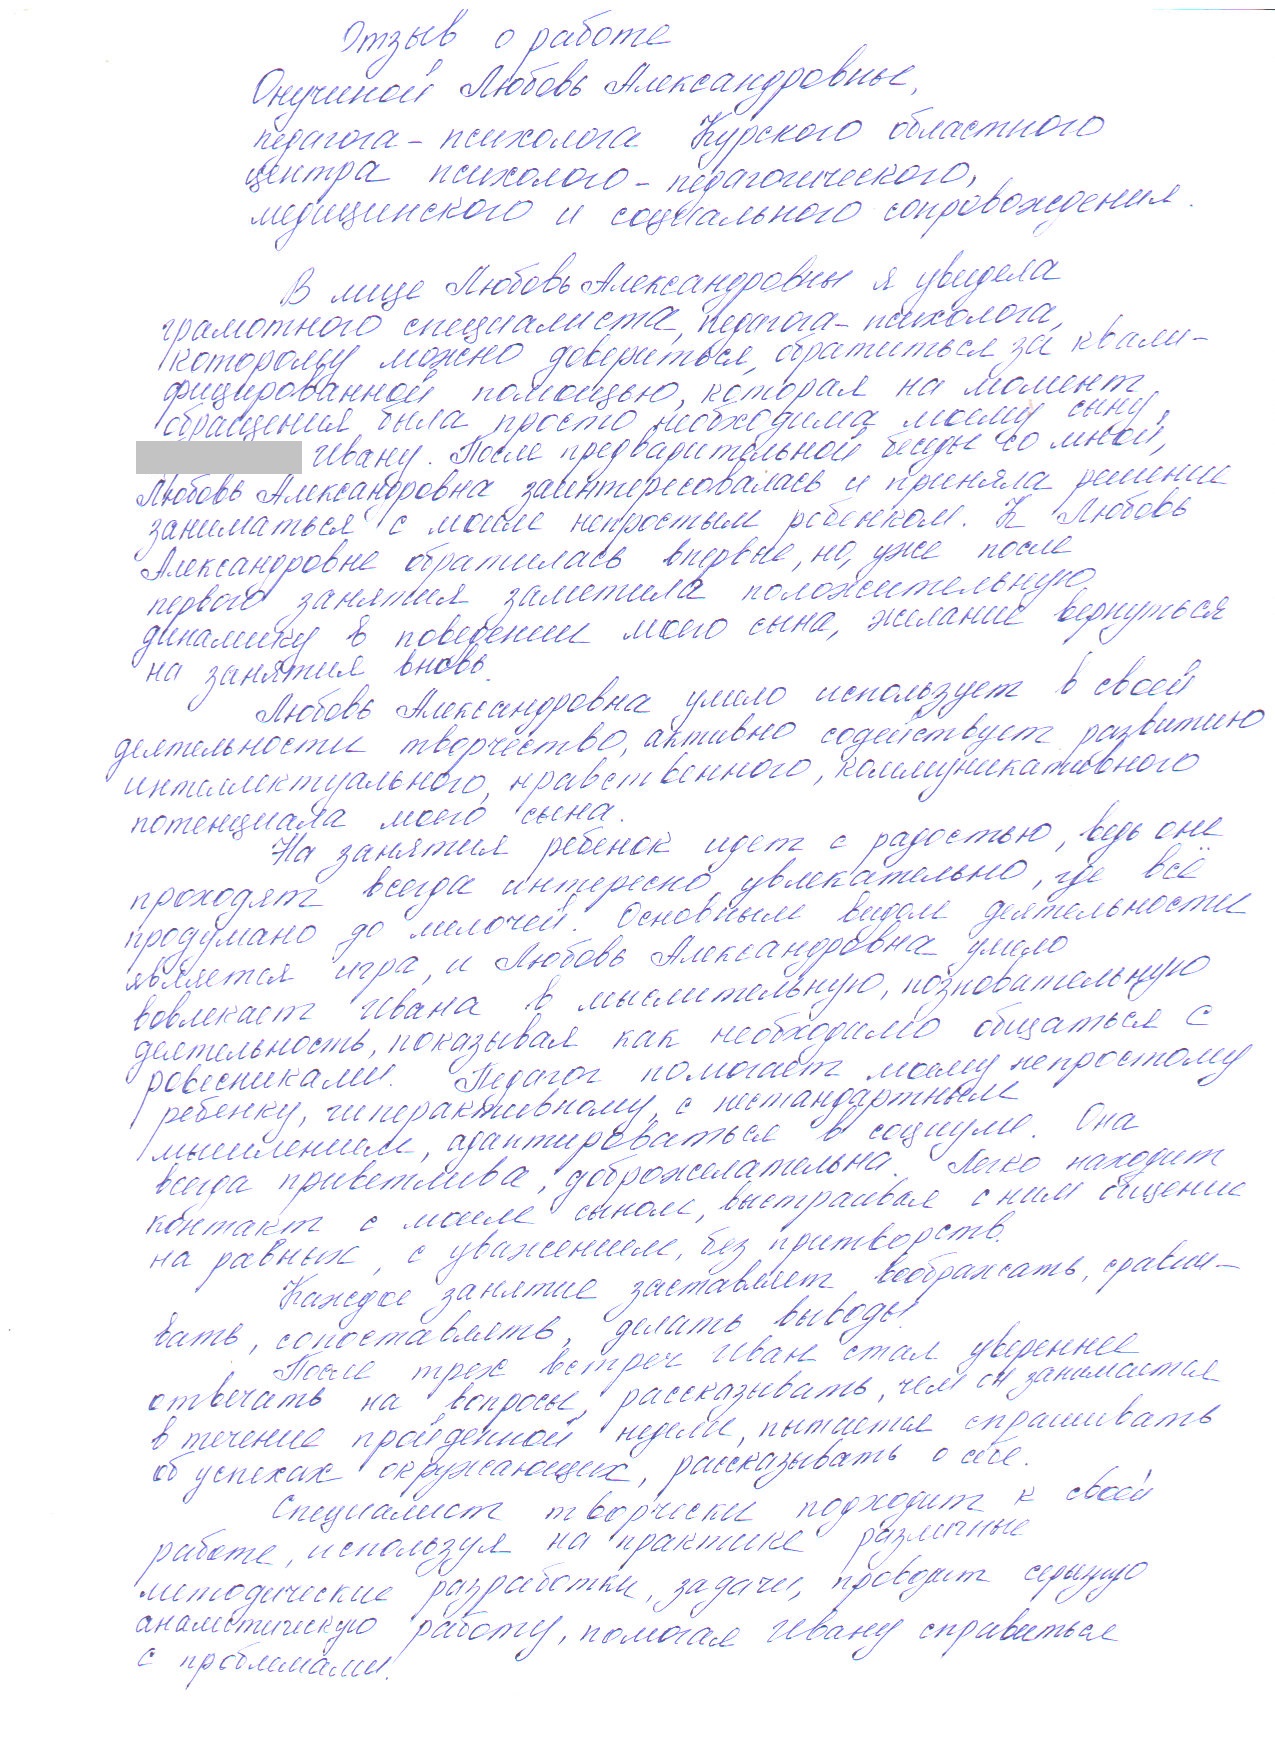 Отзыв о работе
Онучиной Любовь Александровны,
педагога - психолога Курского областного
центра психолого - педагогического,
медицинского и социального сопровождения.
В лице Любовь Александровны я увидела
грамотного специалиста, педагога - психолога,
которому можно довериться, обратиться за квали-
фицированной помощью, которая на момент
обращения была просто необходима моему сыну,
Ивану. После предварительной беседы со мной,
Любовь Александровна заинтересовалась и приняла решение
заниматься с моим непростым ребенком. К Любовь
Александровне обратилась впервые, но, уже после
первого занятия заметила положительную
динамику в поведении моего сына, желание вернуться
на занятия вновь.
Любовь Александровна умело использует в своей
деятельности творчество, активно содействует развитию
интеллектуального, нравственного, коммуникативного
потенциала моего сына.
На занятия ребенок идет с радостью, ведь они
проходят всегда интересно, увлекательно, где всё
продумано до мелочей. Основным видом деятельности
является игра, и Любовь Александровна умело
вовлекает Ивана в мыслительную, познавательную
деятельность, показывая как необходимо общаться с
ровесниками. Педагог помогает моему непростому
ребенку, гиперактивному, с нестандартным
мышлением, адаптироваться в социуме. Она
всегда приветлива, доброжелательна. Легко находит
контакт с моим сыном, выстраивая с ним общение
на равных, с уважением, без притворств.
Каждое занятие заставляет воображать, сравни-
вать, сопоставлять, делать выводы.
После трех встреч Иван стал увереннее
отвечать на вопросы, рассказывать, чем он занимается
в течение пройденной недели, пытается спрашивать
об успехах окружающих, рассказывать о себе.
Специалист творчески подходит к своей
работе, используя на практике различные
методические разработки, задачи, проводит серьезную
аналитическую работу, помогая Ивану справиться
с проблемами.